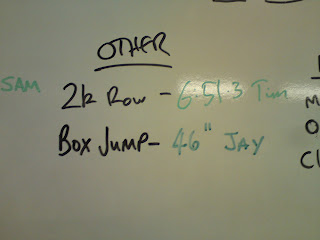 OTHER
SAM 2k Row - 6:51.3 Tim
BOX JUMP- 46" JAY
M
O
CL